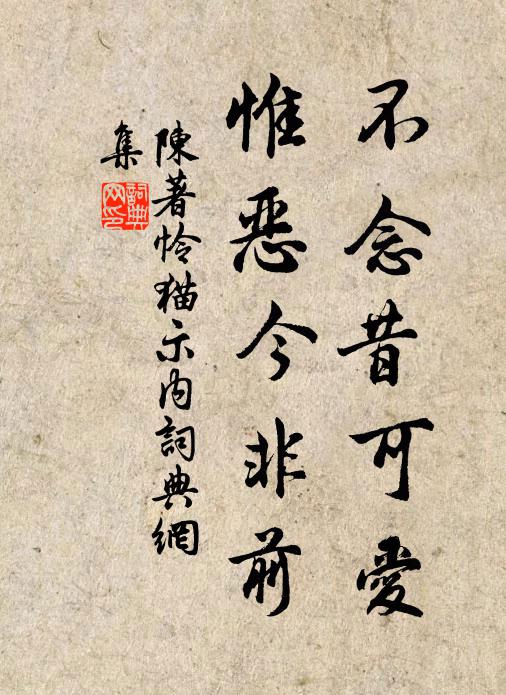 不念昔可愛
惟惡今非前
陳著怜猫示内詞典網
集
詞典
网印